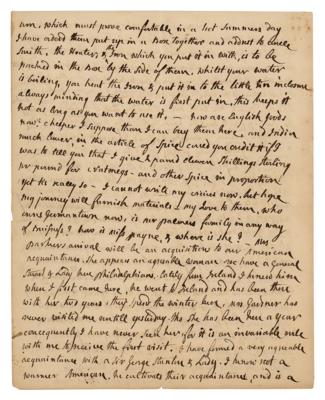 urn, which must prove comfortable in a hot Summers day
I have orderd them put up in a Box together and addrest to Uncle
Smith, the Heater, & the Iron which you put it in with, is to be
packed in the Box by the side of them. whilst your water
is boiling, you heat the Iron & put it in to the little tin inclosure
always minding that the water is first put in, this keeps it
hot as long as you want to use it, — how are English goods
now? cheaper I suppose than I can buy them here, and India
much lower, in the article of Spice could you credit it if I
was to tell you that I give 2 pound eleven Shillings Sterling
pr pound for Nutmegs — and other Spice in proportion
yet tis realy so — I cannot write my curious now, but hope
my journey will furnish materials — my Love to them, who
owns Germantown now, is mr palmers family in any way
of business, how is miss payne, & where is she — mrs
parkers arrival will be an acquisition to our American
acquaintance. She appears an agreable woman we have a General
Stewart & Lady here philadelphians, lately from Ireland I knew him
when I first came here, he went to Ireland and has been there
with her two years. they Spend the winter here, mrs Gardner has
never visited me untill yesterday tho she has been here a year
concequently I have never seen her for it is an invariable rule
with me to receive the first visit. I have formed a very agreable
acquaintance with a Sir George Stanton & Lady. I know not a
warmer American, he cultivates their acquaintance, and is a